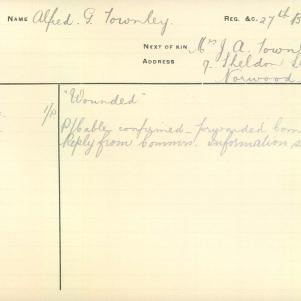 NAME Alfred. G. Townley. REG. &C. 27th B
NEXT OF KIN Mrs J. A. Town
ADDRESS 7. Sheldon S
Norwood
"Wounded"
1/P P/Cable confirmed - forwarded Com
Reply from Commn. Information s